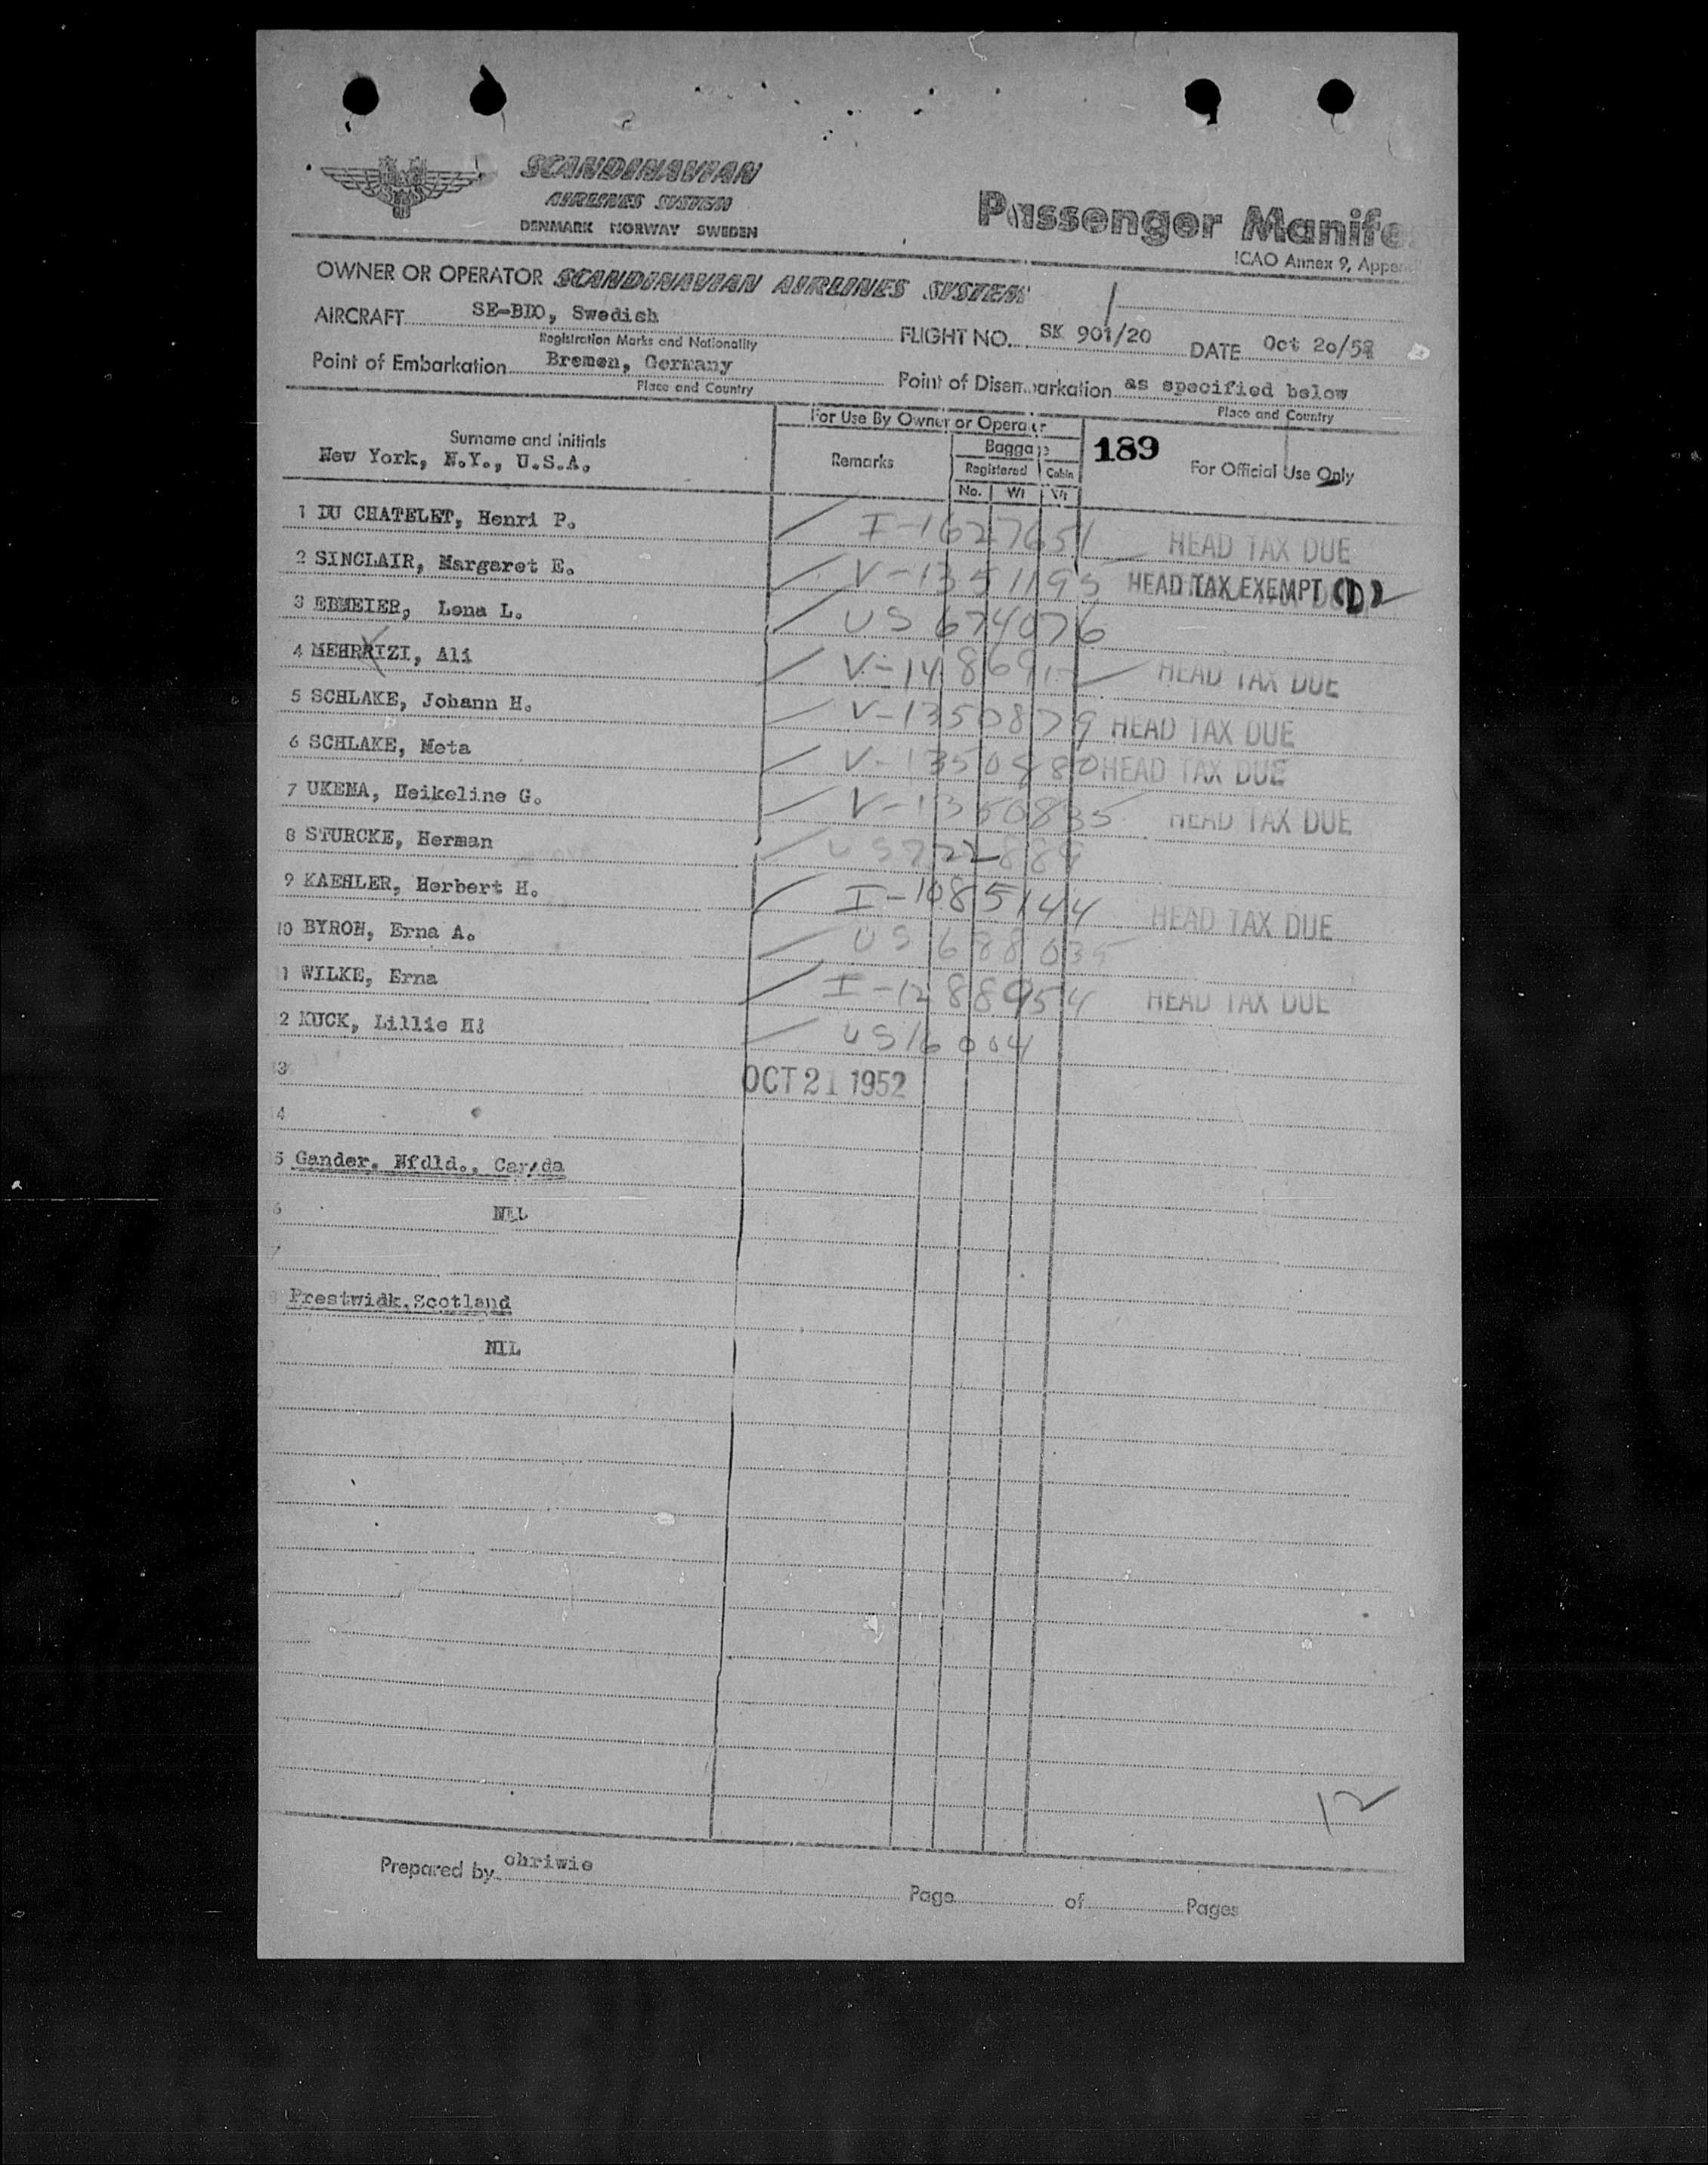 SCANDINAVIAN
AIRLINES SYSTEM
DENMARK NORWAY SWEDEN
Passenger Manife
ICAO Annex 9, Appen
OWNER OR OPERATOR SCANDINAVIAN AIRLINES SYSTEM
AIRCRAFT SE-BDO, Swedish FLIGHT NO. SK 901/20 DATE Oct 20/52
Registration Marks and Nationality
Point of Embarkation Bremen, Germany Point of Disembarkation as specified below
Place and Country Place and Country
For Use By Owner or Operator
Surname and Initials Remarks Baggage 189 For Official Use Only
New York, N.Y., U.S.A. Registered Cabin
No. Wt Wt
1 DU CHATELET, Henri P. I-1627651 HEAD TAX DUE
2 SINCLAIR, Margaret E. V-1351195 HEAD TAX EXEMPT (D)
3 EBMEIER, Lena L. US 674076
4 MEHRRIZI, Ali V-148691 HEAD TAX DUE
5 SCHLAKE, Johann H. V-1350879 HEAD TAX DUE
6 SCHLAKE, Meta V-1350880 HEAD TAX DUE
7 UKENA, Heikeline G. V-1350835 HEAD TAX DUE
8 STURCKE, Herman US 722889
9 KAEHLER, Herbert H. I-1085144 HEAD TAX DUE
10 BYRON, Erna A. US 688035
11 WILKE, Erna I-1288954 HEAD TAX DUE
2 KUCK, Lillie H! US 16004
3 OCT 21 1952
4
5 Gander, Nfdld., Canada
6 NIL
7
Prestwidk, Scotland
NIL
12
Prepared by ohriwie
Page of Pages